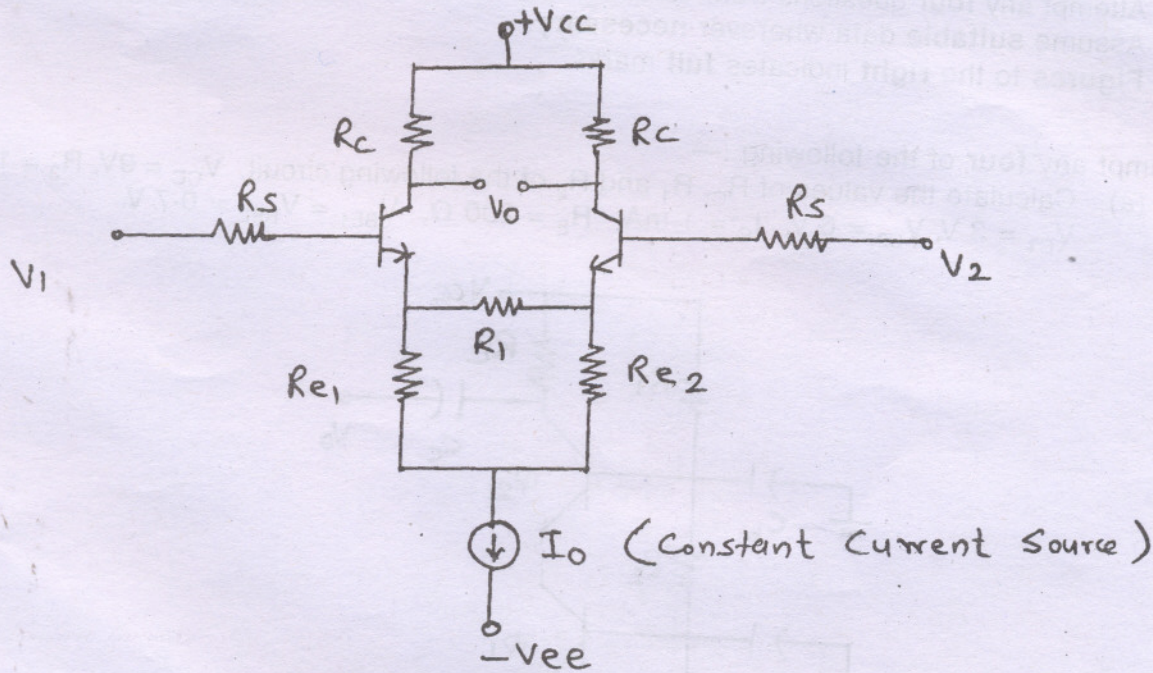 +Vcc
Rc
Rc
Vo
Rs
Rs
V1
V2
R1
Re1
Re2
Io (Constant Current Source)
-Vee